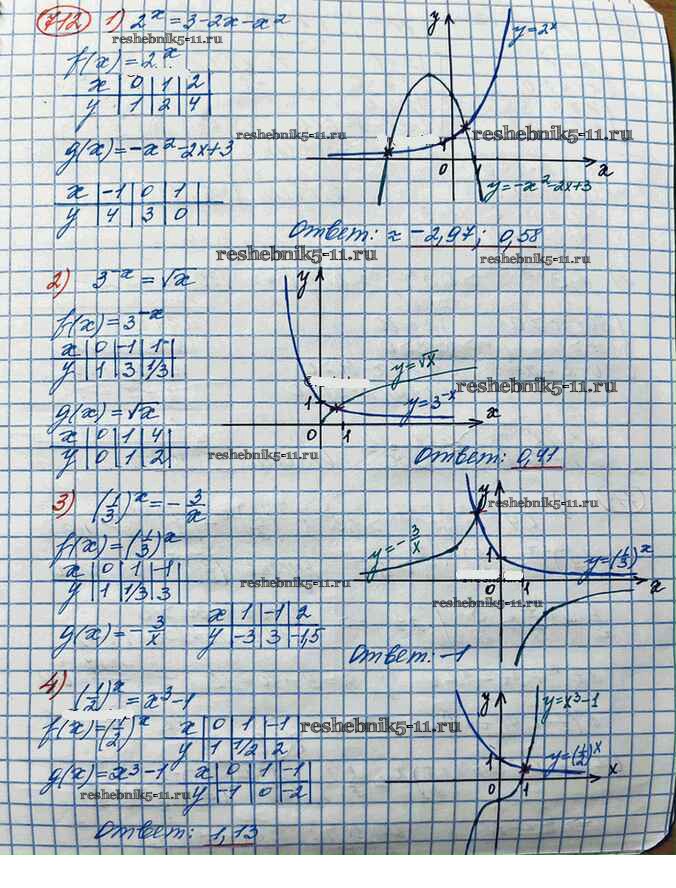 712 1) 2^x = 3-2x-x²
reshebnik5-11.ru
f(x)=2^x
x | 0 | 1 | 2
y | 1 | 2 | 4
g(x)=-x²-2x+3
x | -1 | 0 | 1
y | 4 | 3 | 0
y
y=2^x
reshebnik5-11.ru
reshebnik5-11.ru
0 1 x
y=-x²-2x+3
Ответ: ≈ -2,97; 0,58
reshebnik5-11.ru
reshebnik5-11.ru
2) 3^-x = √x
f(x)=3^-x
x | 0 | -1 | 1
y | 1 | 3 | 1/3
g(x)=√x
x | 0 | 1 | 4
y | 0 | 1 | 2
reshebnik5-11.ru
y
y=√x
reshebnik5-11.ru
1
y=3^-x
x
0 1
Ответ: 0,41
3) (1/3)^x = -3/x
f(x)=(1/3)^x
x | 0 | 1 | -1
y | 1 | 1/3 | 3
g(x)=-3/x
x | 1 | -1 | 2
y | -3 | 3 | -1,5
y
reshebnik5-11.ru
y=-3/x
1
y=(1/3)^x
x
0 1
reshebnik5-11.ru
Ответ: -1
4) (1/2)^x = x³-1
f(x)=(1/2)^x
x | 0 | 1 | -1
y | 1 | 1/2 | 2
reshebnik5-11.ru
g(x)=x³-1
x | 0 | 1 | -1
y | -1 | 0 | -2
reshebnik5-11.ru
y
y=x³-1
1
y=(1/2)^x
x
0 1
Ответ: 1,13